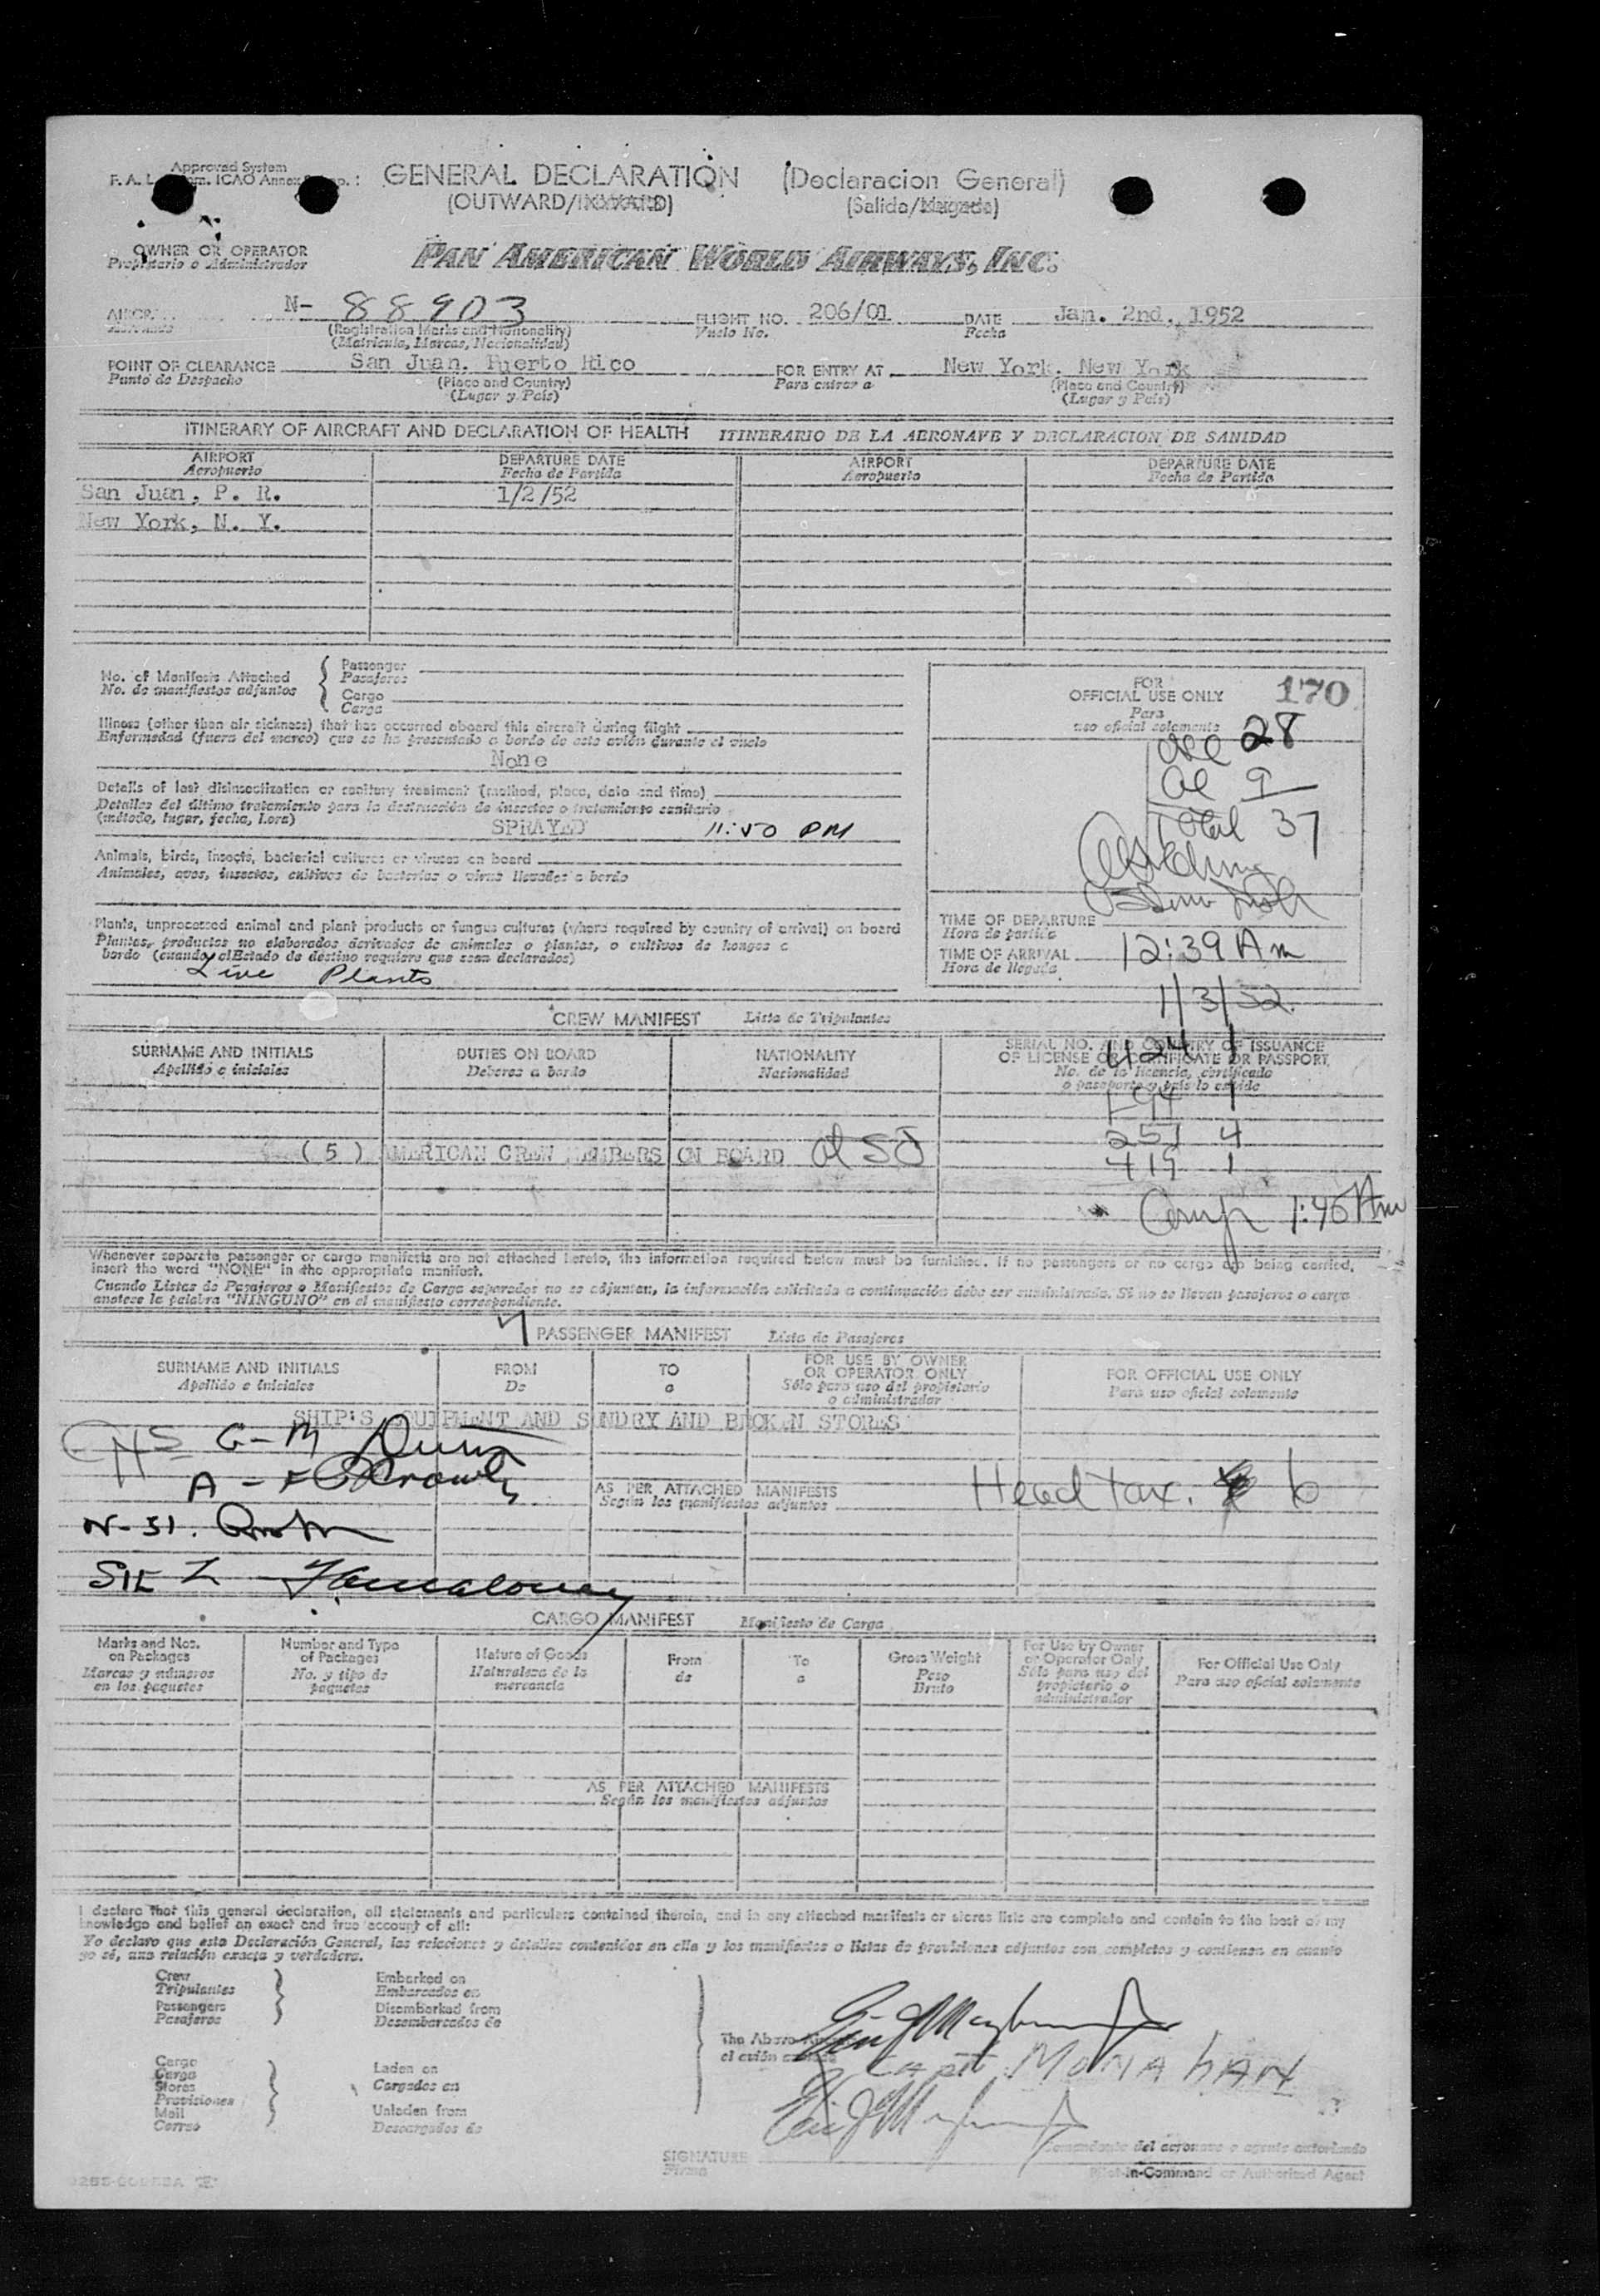 Approved System
GENERAL DECLARATION (Declaracion General)
(OUTWARD/INWARD) (Salida/Llegada)
OWNER OR OPERATOR
Propietario o Administrador
PAN AMERICAN WORLD AIRWAYS, INC.
N- 88903 FLIGHT NO. 206/01 DATE Jan. 2nd, 1952
(Registration Marks and Nationality) Vuelo No. Fecha
(Matricula, Marcas, Nacionalidad)
POINT OF CLEARANCE San Juan, Puerto Rico FOR ENTRY AT New York, New York
Punto de Despacho (Place and Country) Para entrar a (Place and Country)
(Lugar y País) (Lugar y País)
ITINERARY OF AIRCRAFT AND DECLARATION OF HEALTH ITINERARIO DE LA AERONAVE Y DECLARACION DE SANIDAD
AIRPORT DEPARTURE DATE AIRPORT DEPARTURE DATE
Aeropuerto Fecha de Partida Aeropuerto Fecha de Partida
San Juan, P. R. 1/2/52
New York, N. Y.
No. of Manifests Attached Passenger
No. de manifiestos adjuntos Pasajeros
Cargo
Carga
FOR
OFFICIAL USE ONLY 170
Para
uso oficial solamente 28
9
Total 37
Illness (other than air sickness) that has occurred aboard this aircraft during flight
Enfermedad (fuera del mareo) que se ha presentado a bordo de este avión durante el vuelo
None
Details of last disinsectization or sanitary treatment (method, place, date and time)
Detalles del último tratamiento para la destrucción de insectos o tratamiento sanitario
(método, lugar, fecha, hora)
SPRAYED 11:50 PM
Animals, birds, insects, bacterial cultures or viruses on board
Animales, aves, insectos, cultivos de bacterias o virus llevados a bordo
Plants, unprocessed animal and plant products or fungus cultures (where required by country of arrival) on board
Plantas, productos no elaborados derivados de animales o plantas, o cultivos de hongos a
bordo (cuando el Estado de destino requiere que sean declarados)
Live Plants
TIME OF DEPARTURE
Hora de partida
TIME OF ARRIVAL 12:39 Am
Hora de llegada
1/3/52.
CREW MANIFEST Lista de Tripulantes
SURNAME AND INITIALS DUTIES ON BOARD NATIONALITY SERIAL NO. AND COUNTRY OF ISSUANCE
Apellido e iniciales Deberes a bordo Nacionalidad OF LICENSE OR CERTIFICATE OR PASSPORT
No. de la licencia, certificado
o pasaporte y país lo expide
251 4
( 5 ) AMERICAN CREW MEMBERS ON BOARD
419 1
Comp 1:45 Am
Whenever separate passenger or cargo manifests are not attached hereto, the information required below must be furnished. If no passengers or no cargo are being carried,
insert the word "NONE" in the appropriate manifest.
Cuando Listas de Pasajeros o Manifiestos de Carga separados no se adjuntan, la información solicitada a continuación debe ser suministrada. Si no se llevan pasajeros o carga
anotese la palabra "NINGUNO" en el manifiesto correspondiente.
PASSENGER MANIFEST Lista de Pasajeros
SURNAME AND INITIALS FROM TO FOR USE BY OWNER FOR OFFICIAL USE ONLY
Apellido e iniciales De a OR OPERATOR ONLY Para uso oficial solamente
Sólo para uso del propietario
o administrador
SHIP'S EQUIPMENT AND SUNDRY AND BROKEN STORES
AS PER ATTACHED MANIFESTS Head tax. 6
Según los manifiestos adjuntos
CARGO MANIFEST Manifiesto de Carga
Marks and Nos. Number and Type Nature of Goods From To Gross Weight For Use by Owner For Official Use Only
on Packages of Packages Naturaleza de la de a Peso or Operator Only Para uso oficial solamente
Marcas y números No. y tipo de mercancia Bruto Sólo para uso del
en los paquetes paquetes propietario o
administrador
AS PER ATTACHED MANIFESTS
Según los manifiestos adjuntos
I declare that this general declaration, all statements and particulars contained therein, and in any attached manifests or stores lists are complete and contain to the best of my
knowledge and belief an exact and true account of all:
Yo declaro que esta Declaración General, las relaciones y detalles contenidos en ella y los manifiestos o listas de provisiones adjuntos son completos y contienen en cuanto
yo sé, una relación exacta y verdadera.
Crew Embarked on
Tripulantes Embarcados en
Passengers Disembarked from
Pasajeros Desembarcados de
The Above
el avión
Capt MONAHAN
Cargo Laden on
Carga Cargados en
Stores
Provisiones
Mail Unladen from
Correo Descargados de
SIGNATURE Comandante del aeronave o agente autorizado
Firma Pilot-in-Command or Authorized Agent